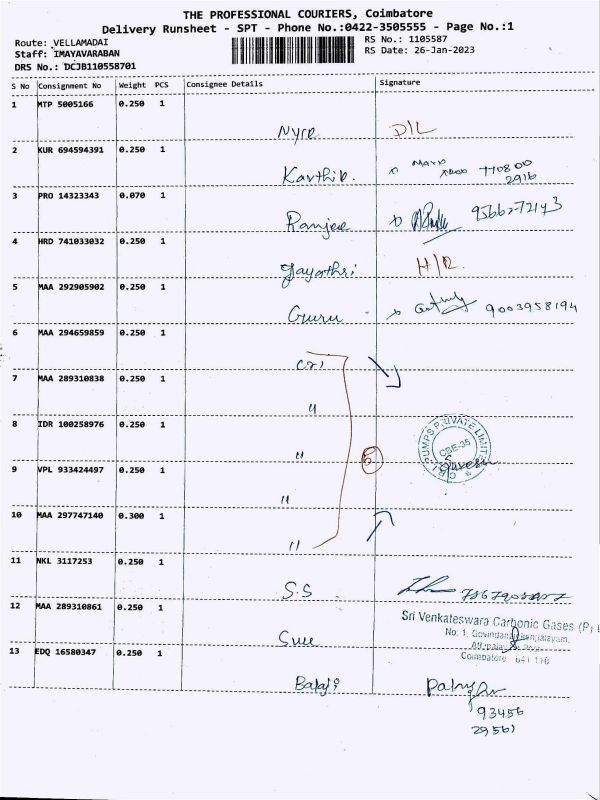 THE PROFESSIONAL COURIERS, Coimbatore
Delivery Runsheet - SPT - Phone No.:0422-3505555 - Page No.:1
Route: VELLAMADAI
RS No.: 1105587
Staff: IMAYAVARABAN
RS Date: 26-Jan-2023
DRS No.: DCJB110558701
S No Consignment No Weight PCS Consignee Details Signature
1 MTP 5005166 0.250 1
Nyra D/L
2 KUR 694594391 0.250 1
Karthik.
3 PRO 14323343 0.070 1
Ranjee
4 HRD 741033032 0.250 1
Gayathri H/R.
5 MAA 292905902 0.250 1
Guru 9003958194
6 MAA 294659859 0.250 1
CRI
7 MAA 289310838 0.250 1
"
8 IDR 100258976 0.250 1
"
C.R.I. PUMPS PRIVATE LIMITED
CBE-35
9 VPL 933424497 0.250 1
"
10 MAA 297747140 0.300 1
"
11 NKL 3117253 0.250 1
S.S
12 MAA 289310861 0.250 1
Sri Venkateswara Carbonic Gases (P)
No: 1, Govindanaickenpalayam,
Coimbatore 641 110
Sree
13 EDQ 16580347 0.250 1
Balaji
93456
29561